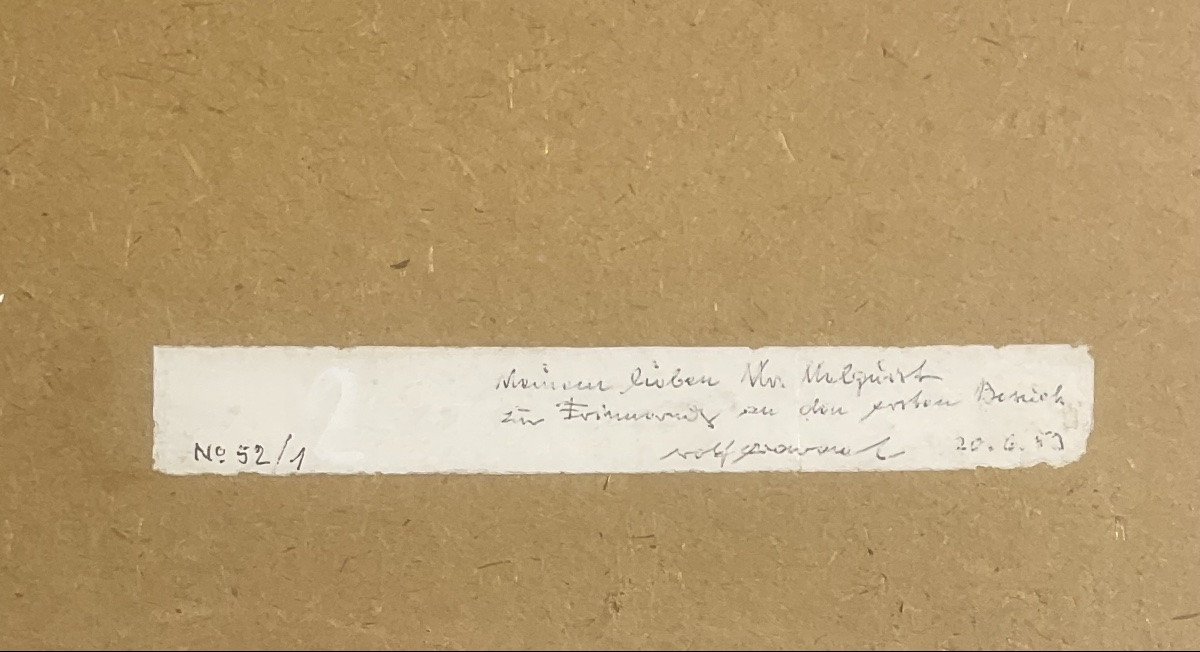 Meinem lieben Mr. Malquist
zur Erinnerung an den ersten Besuch
No 52/1 rolf 20.6.53